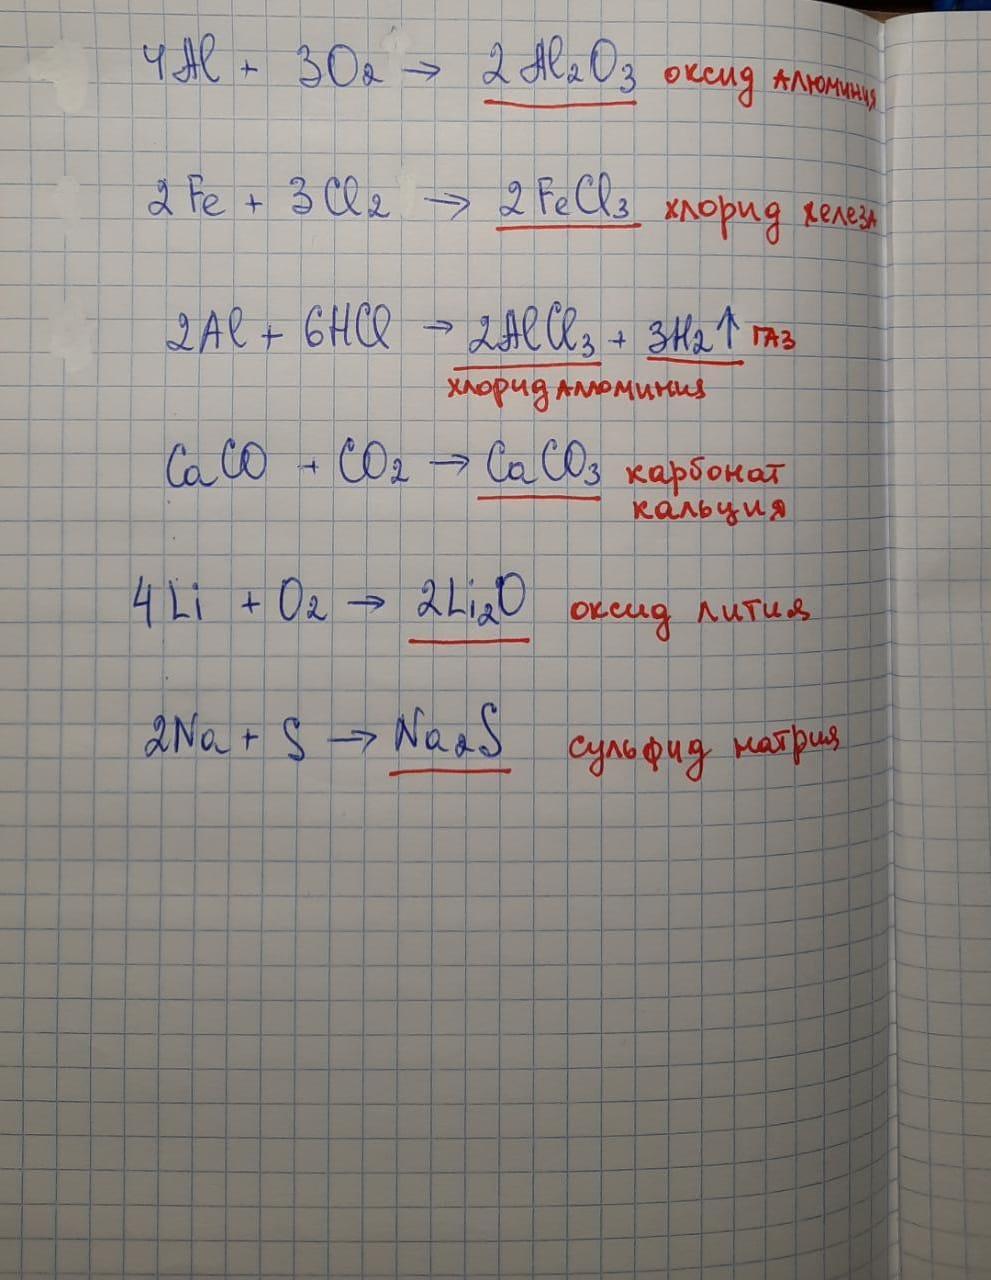 4Al + 3O₂ → 2Al₂O₃ оксид алюминия
2Fe + 3Cl₂ → 2FeCl₃ хлорид железа
2Al + 6HCl → 2AlCl₃ + 3H₂↑ газ
хлорид алюминия
CaCO + CO₂ → CaCO₃ карбонат
кальция
4Li + O₂ → 2Li₂O оксид лития
2Na + S → Na₂S сульфид натрия